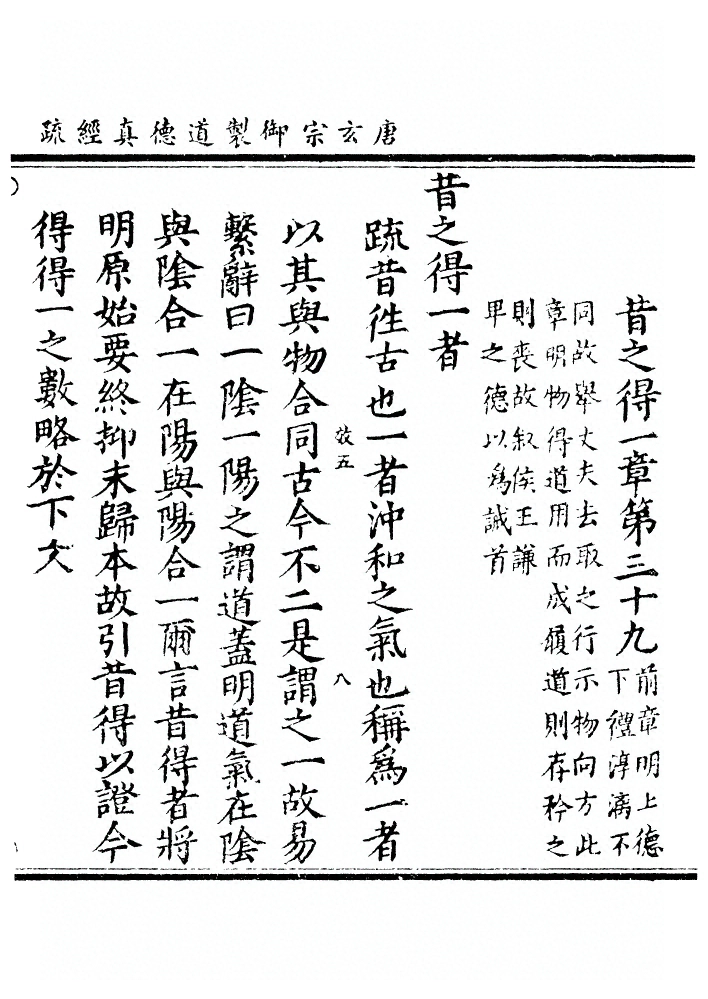 唐玄宗御製道德真經疏
昔之得一章第三十九
前章明上德
下禮淳漓不
同故舉丈夫去取之行示物向方此
章明物得道用而成履道則存矜之
則喪故叙侯王謙
卑之德以爲誡首
昔之得一者
疏昔徃古也一者沖和之氣也稱爲一者
效五 八
以其與物合同古今不二是謂之一故易
繫辭曰一陰一陽之謂道蓋明道氣在陰
與陰合一在陽與陽合一爾言昔得者將
明原始要終抑末歸本故引昔得以證今
得得一之數略於下文